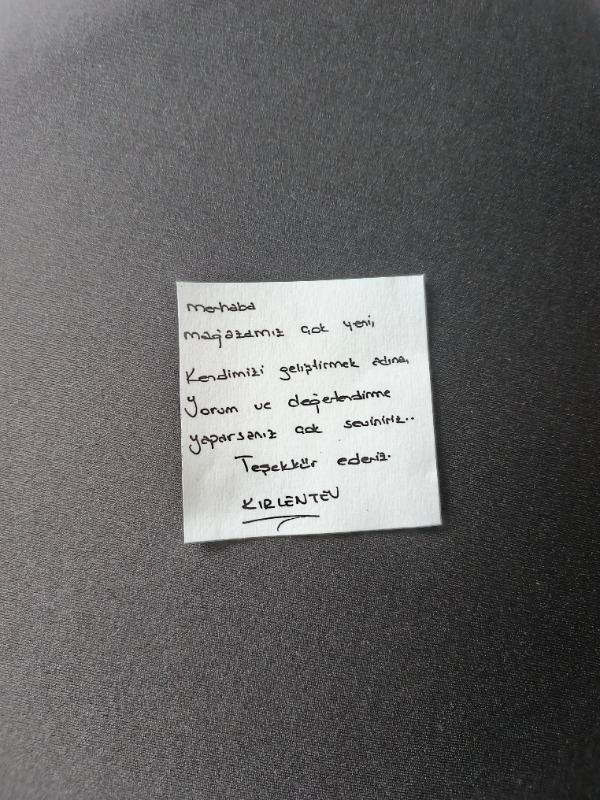 merhaba
mağazamız çok yeni,
Kendimizi geliştirmek adına,
Yorum ve değerlendirme
yaparsanız çok seviniriz..
Teşekkür ederiz.
KIRLENTEV